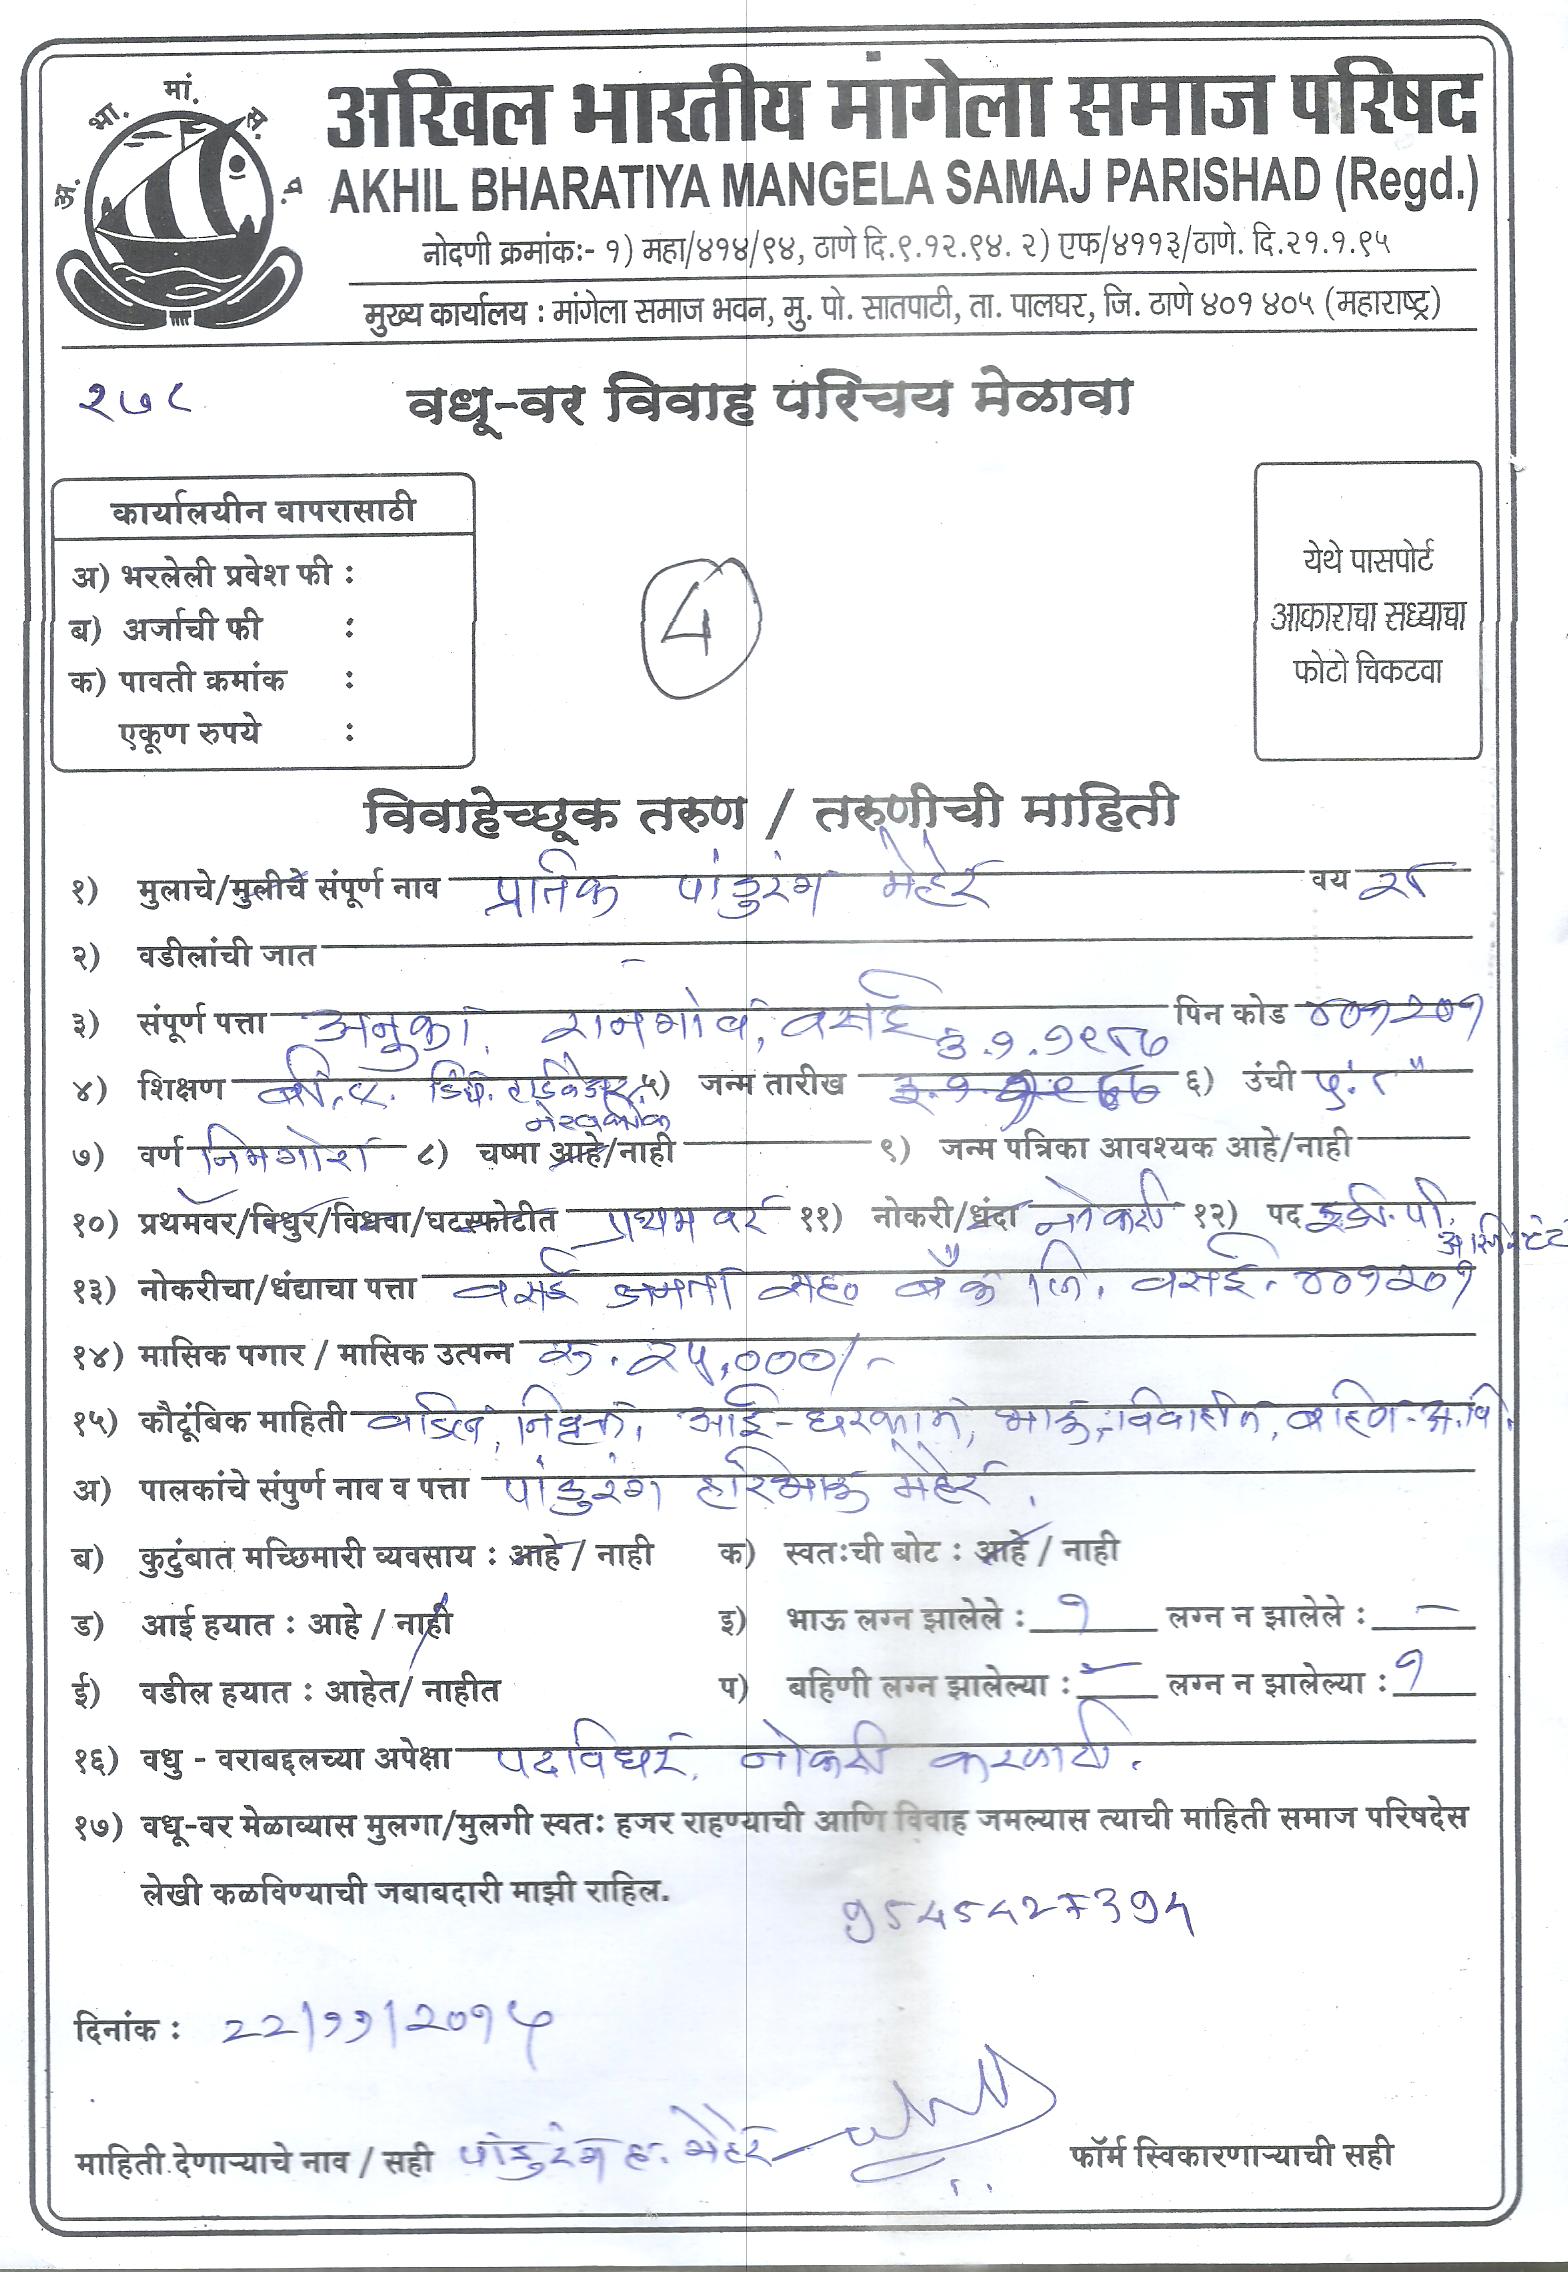 अ. भा. मां. स. प.
अखिल भारतीय मांगेला समाज परिषद
AKHIL BHARATIYA MANGELA SAMAJ PARISHAD (Regd.)
नोदणी क्रमांकः- १) महा/४१४/९४, ठाणे दि.९.१२.९४. २) एफ/४११३/ठाणे. दि.२१.१.९५
मुख्य कार्यालय : मांगेला समाज भवन, मु. पो. सातपाटी, ता. पालघर, जि. ठाणे ४०१ ४०५ (महाराष्ट्र)
२७८
वधू-वर विवाह परिचय मेळावा
कार्यालयीन वापरासाठी
अ) भरलेली प्रवेश फी :
ब) अर्जाची फी :
क) पावती क्रमांक :
एकूण रुपये :
4
येथे पासपोर्ट
आकाराचा सध्याचा
फोटो चिकटवा
विवाहेच्छूक तरुण / तरुणीची माहिती
१) मुलाचे/मुलीचे संपूर्ण नाव प्रतिक पांडुरंग मेहेर वय २८
२) वडीलांची जात -
३) संपूर्ण पत्ता रानगांव, वसई पिन कोड ४०१२०१
३.१.१९८७
४) शिक्षण बी.ए. ५) जन्म तारीख ६) उंची ५'.८"
७) वर्ण निमगोरा ८) चष्मा आहे/नाही ९) जन्म पत्रिका आवश्यक आहे/नाही
१०) प्रथमवर/विधुर/विधवा/घटस्फोटीत प्रथम वर ११) नोकरी/धंदा नोकरी १२) पद ई.डी.पी.
१३) नोकरीचा/धंद्याचा पत्ता वसई जनता सह० बँक लि. वसई. ४०१२०१
१४) मासिक पगार / मासिक उत्पन्न रु. २५,०००/-
१५) कौटूंबिक माहिती वडिल, निवृत्त, आई-घरकाम, भाऊ-विवाहीत, बहिण-अ.वि.
अ) पालकांचे संपुर्ण नाव व पत्ता पांडुरंग हरिभाऊ मेहेर.
ब) कुटुंबात मच्छिमारी व्यवसाय : आहे / नाही क) स्वतःची बोट : आहे / नाही
ड) आई हयात : आहे / नाही इ) भाऊ लग्न झालेले : १ लग्न न झालेले : -
ई) वडील हयात : आहेत/ नाहीत प) बहिणी लग्न झालेल्या : - लग्न न झालेल्या : १
१६) वधु - वराबद्दलच्या अपेक्षा पदविधर, नोकरी करणारी.
१७) वधू-वर मेळाव्यास मुलगा/मुलगी स्वतः हजर राहण्याची आणि विवाह जमल्यास त्याची माहिती समाज परिषदेस
लेखी कळविण्याची जबाबदारी माझी राहिल.
दिनांक : 22/११/२०१५
माहिती देणाऱ्याचे नाव / सही पांडुरंग ह. मेहेर फॉर्म स्विकारणाऱ्याची सही